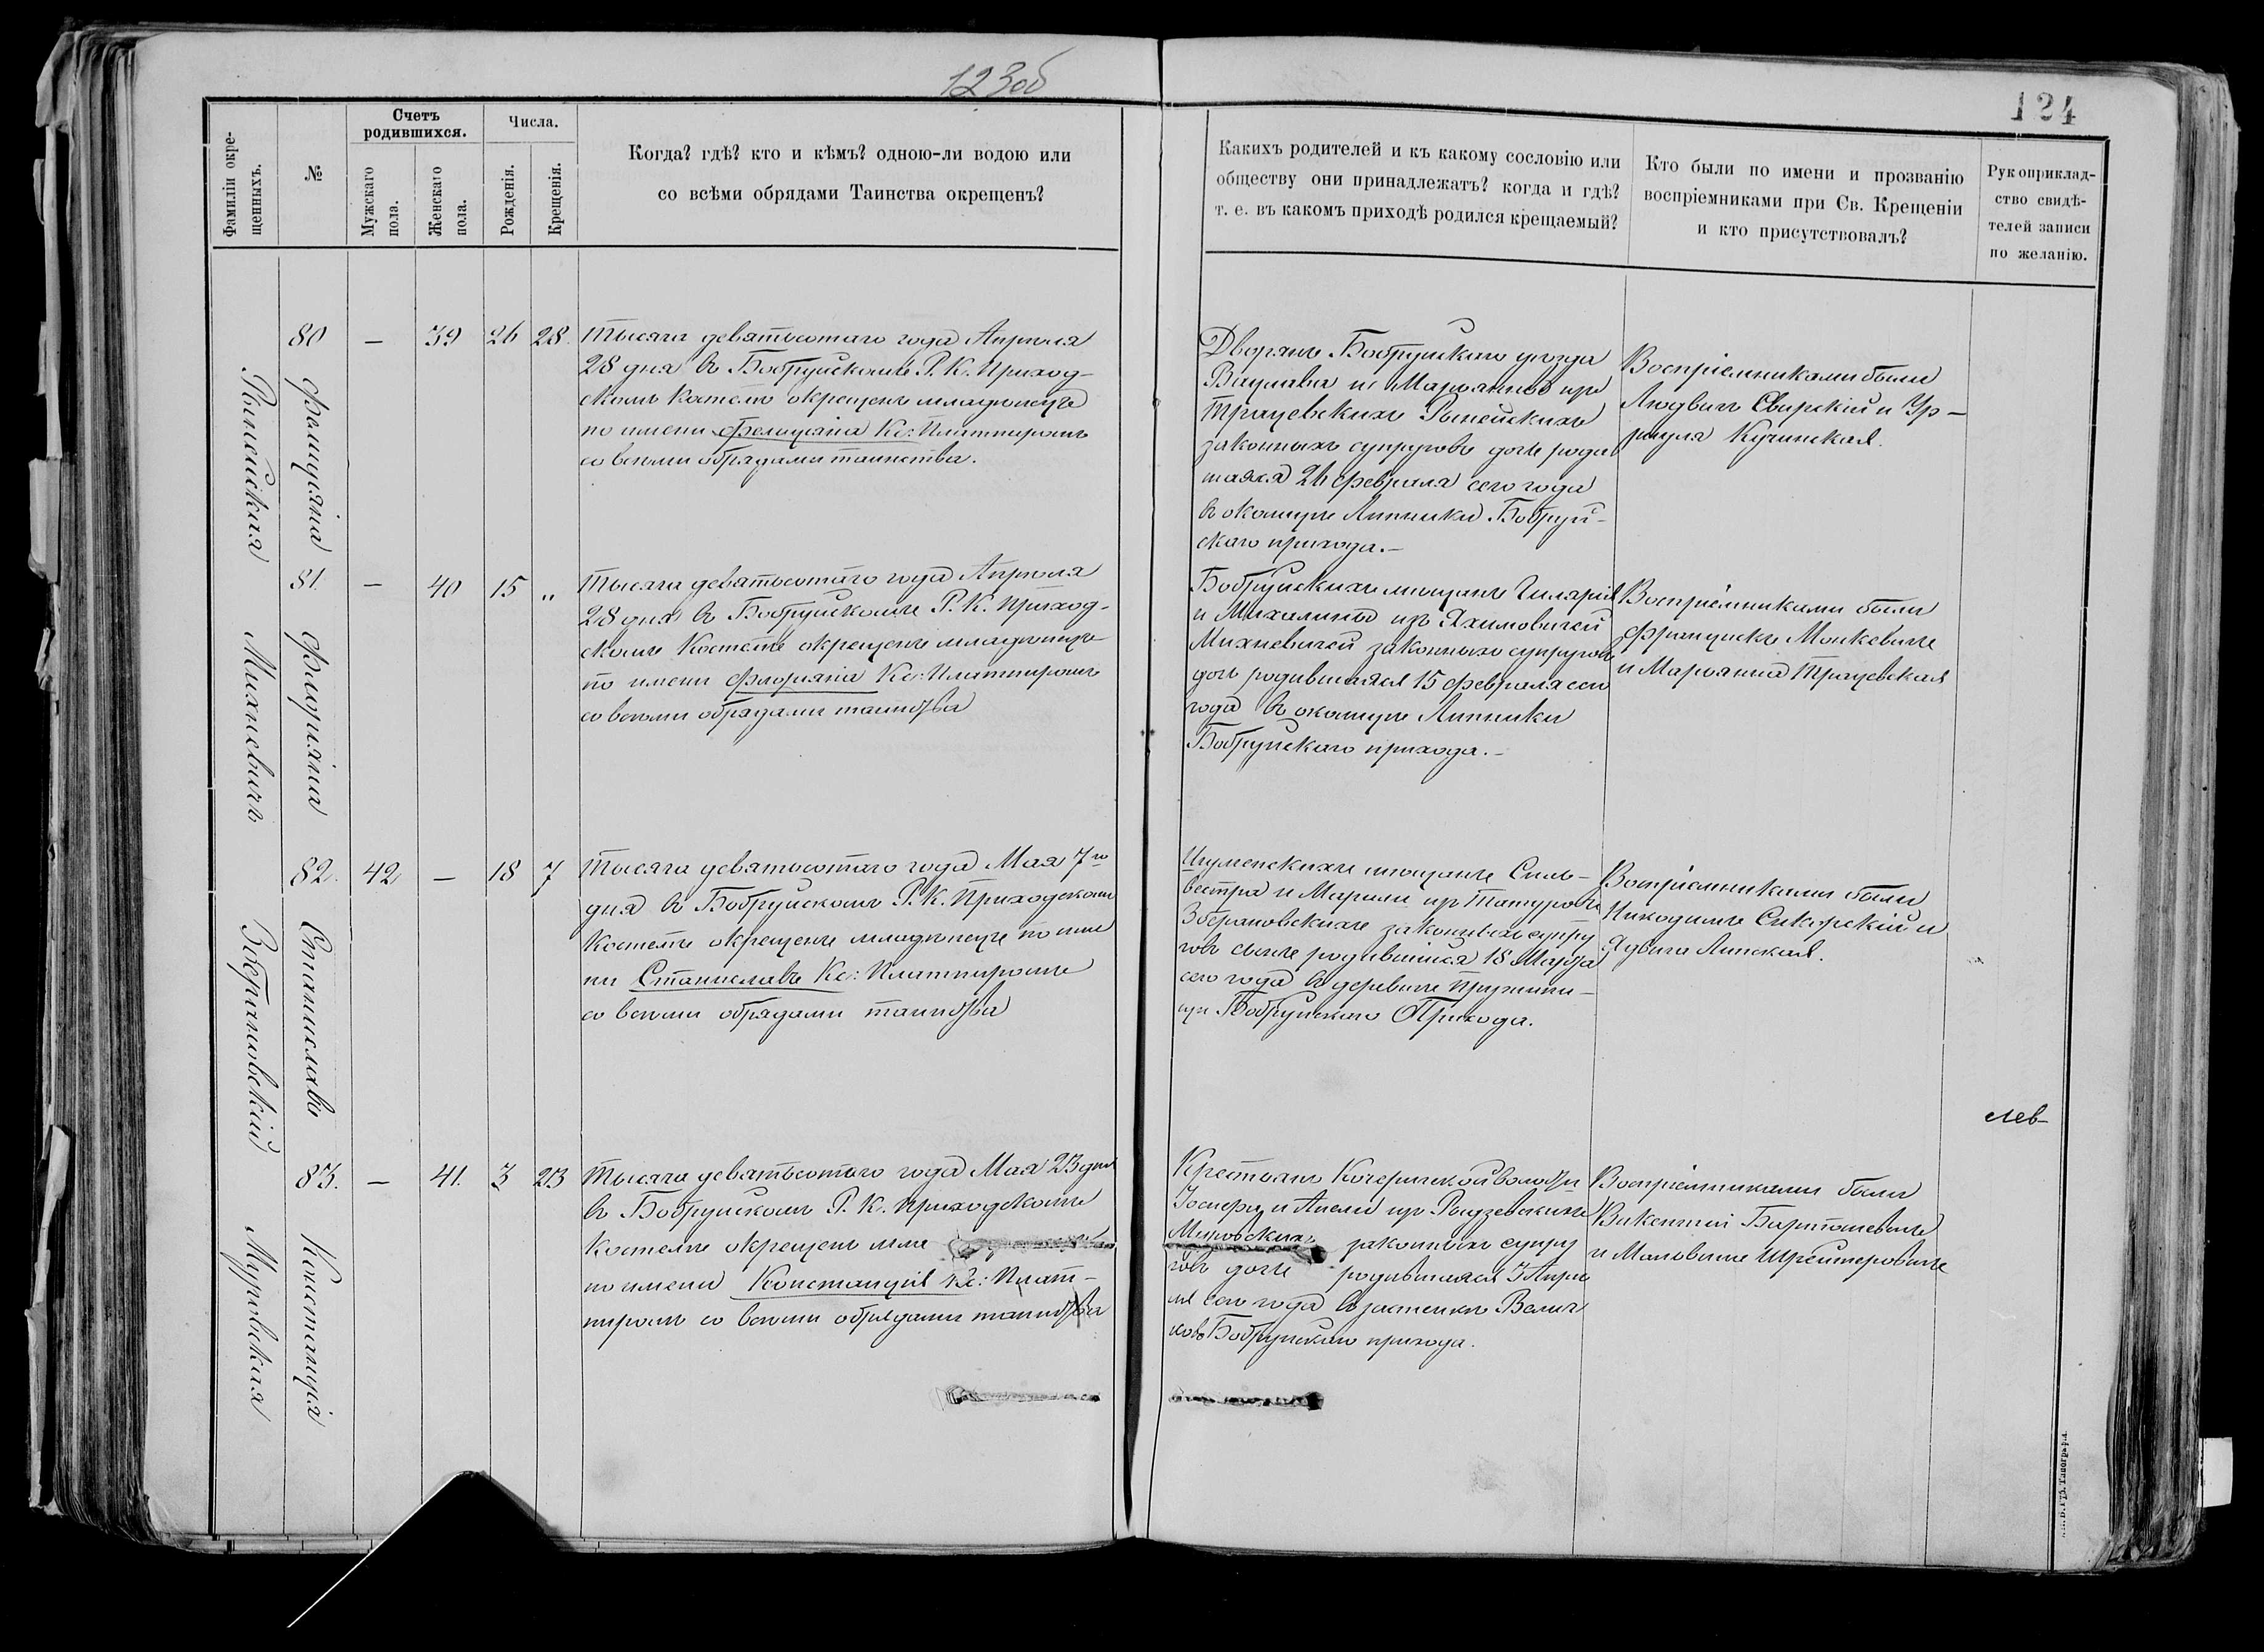 123об
124
Фамиліи окрещенныхъ.
№
Счетъ родившихся.
Мужскаго пола.
Женскаго пола.
Числа.
Рожденія.
Крещенія.
Когда? гдѣ? кто и кѣмъ? одною-ли водою или
со всѣми обрядами Таинства окрещенъ?
Какихъ родителей и къ какому сословію или
обществу они принадлежатъ? когда и гдѣ?
т. е. въ какомъ приходѣ родился крещаемый?
Кто были по имени и прозванію
воспріемниками при Св. Крещеніи
и кто присутствовалъ?
Рукоприклад-
ство свидѣ-
телей записи
по желанію.
Фелиціяна
80 — 39 26 28.
Тысяча девятьсотаго года Апрѣля
28 дня въ Бобруйскомъ Р. К. Приход-
скомъ Костелѣ окрещенъ младенецъ
по имени Фелиціяна Кс: Платпиромъ
со всѣми обрядами таинства.
Дворянъ Бобруйскаго уѣзда
Вацлава и Марьянны изъ
законныхъ супруговъ дочь роди
26 февраля сего года
въ околицѣ Липники Бобруй-
скаго прихода.—
Воспріемниками были
Людвигъ Свирскій и Ур-
шуля Кучинская.
Михневичъ
Флоріяна
81. — 40 15 „
Тысяча девятьсотаго года Апрѣля
28 дня въ Бобруйскомъ Р. К. Приход-
скомъ Костелѣ окрещенъ младенецъ
по имени Флоріяна Кс: Платпиромъ
со всѣми обрядами таинства
Бобруйскихъ мѣщанъ Гилярія
и Михалины изъ Яхимовичей
Михневичей законныхъ супруговъ
дочь родившаяся 15 февраля сего
года въ околицѣ Липники
Бобруйскаго прихода.—
Воспріемниками были
Францискъ Монкевичъ
и Марьянна Трацевская
Зберановскій
Станиславъ
82. 42 — 18 7
Тысяча девятьсотаго года Мая 7го
дня въ Бобруйскомъ Р. К. Приходскомъ
Костелѣ окрещенъ младенецъ по име
ни Станиславъ Кс: Платпиромъ
со всѣми обрядами таинства
Игуменскихъ мѣщанъ Силь-
вестра и Маріи изъ Татуровъ
Зберановскихъ законныхъ супру
говъ сынъ родившійся 18 Марта
сего года въ деревнѣ
Бобруйскаго Прихода.
Воспріемниками были
Никодимъ Сикорскій и
Ядвига Линская.
лев-
Муровская
Констанція
83. — 41. 3 23
Тысяча девятьсотаго года Мая 23 дня
въ Бобруйскомъ Р. К. Приходскомъ
Костелѣ окрещенъ мла
по имени Констанція Кс: Плат-
пиромъ со всѣми обрядами таинства
Крестьянъ Качеричской волости
Іосифа и Анели изъ Радзевскихъ
законныхъ супру
говъ дочь родившаяся 3 Апрѣ
ля сего года въ застенкѣ Велич
ковъ Бобруйскаго прихода.
Воспріемниками были
Викентій Бартошевичъ
и Мальвина